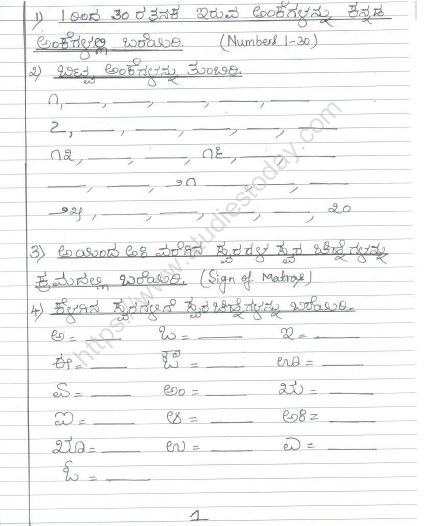 1) 1 ರಿಂದ 30 ರ ತನಕ ಇರುವ ಅಂಕೆಗಳನ್ನು ಕನ್ನಡ
ಅಂಕೆಗಳಲ್ಲಿ ಬರೆಯಿರಿ. (Numbers 1-30)
2) ಬಿಟ್ಟ ಅಂಕೆಗಳನ್ನು ತುಂಬಿರಿ.
೧, __, __, __, __, __
೭, __, __, __, __, __
೧೩, __, __, ೧೬, __
__, __, ೨೧, __, __
೨೫, __, __, __, __, ೩೦
3) ಅಯಿಂದ ಅಃ ವರೆಗಿನ ಸ್ವರಗಳ ಸ್ವರ ಚಿಹ್ನೆಗಳನ್ನು
ಕ್ರಮದಲ್ಲಿ ಬರೆಯಿರಿ. (Sign of Matras)
4) ಕೆಳಗಿನ ಸ್ವರಗಳಿಗೆ ಸ್ವರ ಚಿಹ್ನೆಗಳನ್ನು ಬರೆಯಿರಿ.
ಅ = __ ಒ = __ ಇ = __
ಈ = __ ಔ = __ ಊ = __
ಏ = __ ಅಂ = __ ಋ = __
ಐ = __ ಆ = __ ಅಃ = __
ೠ = __ ಉ = __ ಎ = __
ಓ = __
1
https://www.studiestoday.com